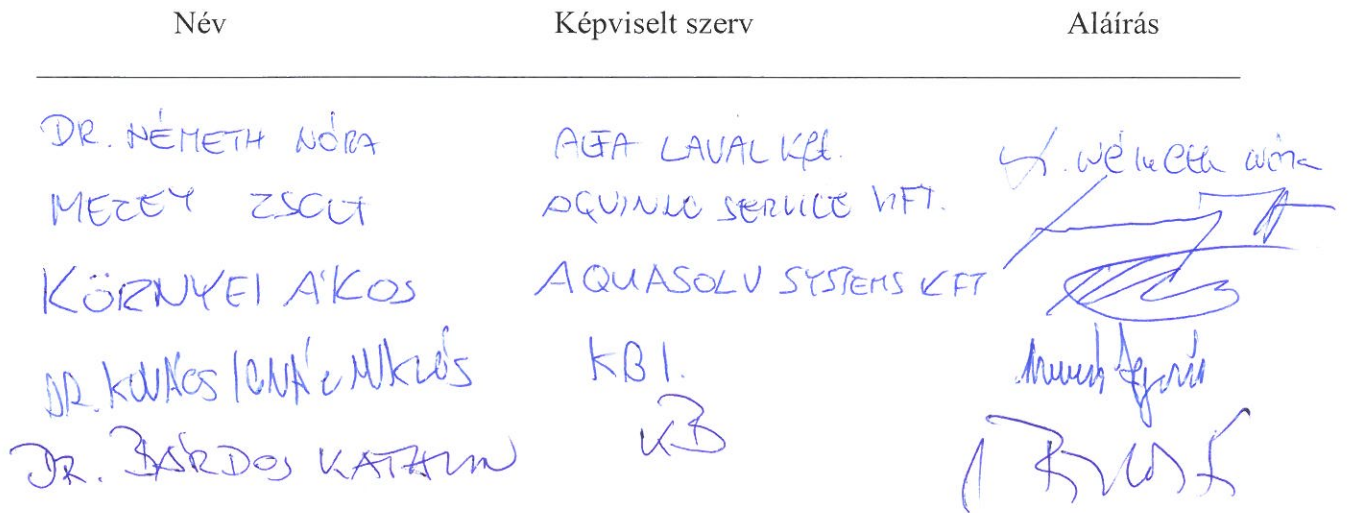 Név Képviselt szerv Aláírás
DR. NÉMETH NÓRA ALFA LAVAL Kft. Dr. Németh Nóra
MEZEY ZSOLT SERVICE KFT.
KÖRNYEI ÁKOS AQUASOLV SYSTEMS KFT
DR. KOVÁCS IGNÁC MIKLÓS KBI.
DR. BÁRDOS KATALIN KB